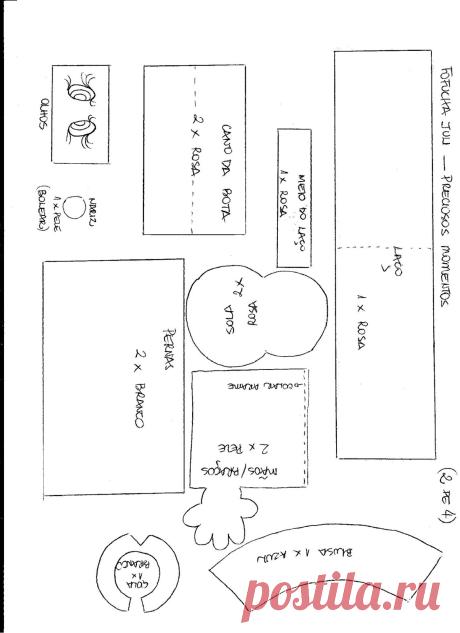 FOFUCHA JULI — PRECIOSOS MOMENTOS
(2 DE 4)
LAÇO
1 X ROSA
MEIO DO LAÇO
1 X ROSA
CANO DA BOTA
2 X ROSA
OLHOS
NARIZ
1 X PELE
(BOLEAR)
SOLA
2X
ROSA
PERNAS
2 X BRANCO
COLAR ARAME
MÃOS/BRAÇOS
2 X PELE
BLUSA 1 X AZUL
GOLA
1X
BRANCO
postila.ru